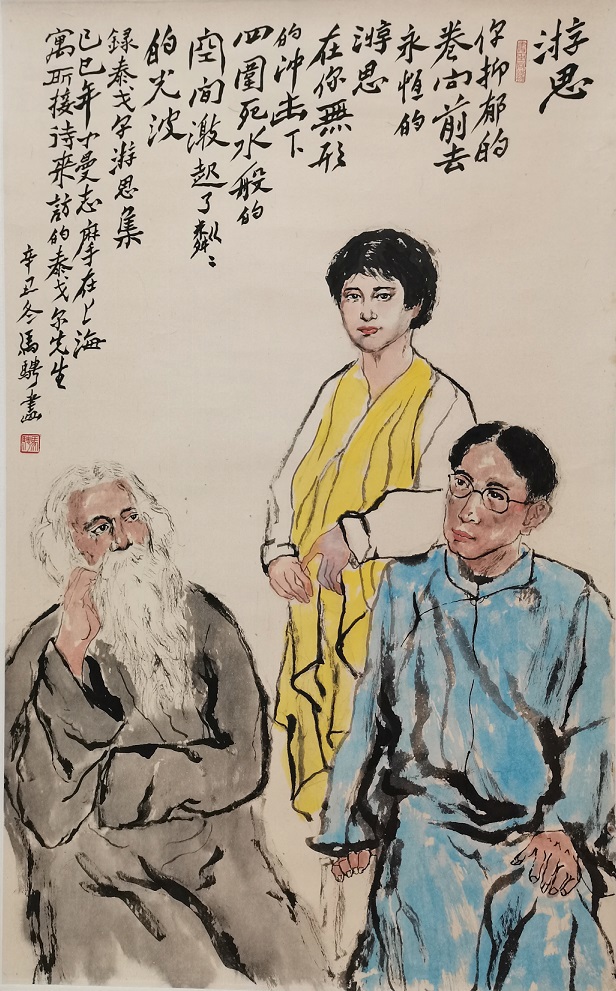 游思
你抑郁的
卷向前去
永恒的
游思
在你無形
的冲击下
四圍死水般的
空间激起了粼々
的光波
録泰戈尔游思集
己巳年小曼志摩在上海
寓所接待来訪的泰戈尔先生
辛丑冬馬騁畫